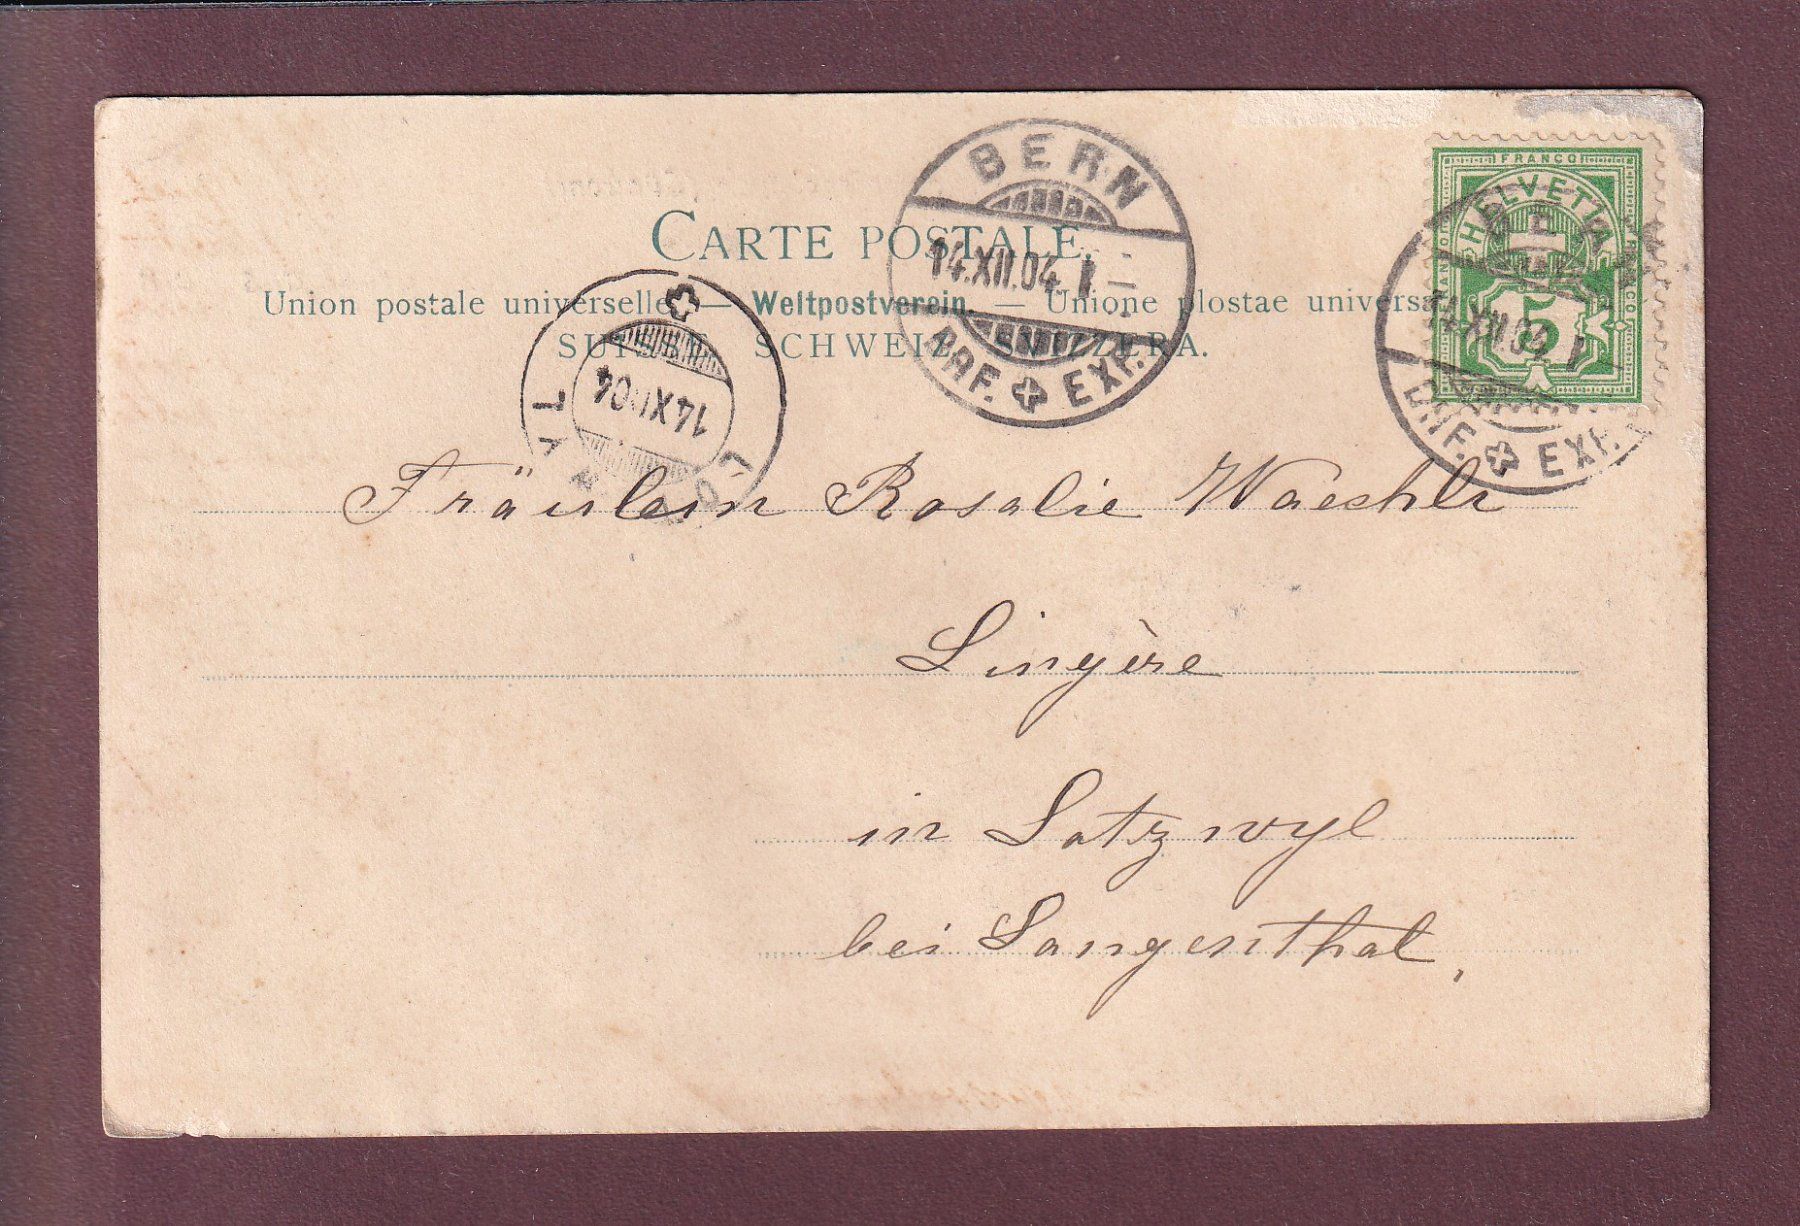 BERN
14.XII.04.
BRF. EXP.
FRANCO
HELVETIA
FRANCO
5
14.XII.04
BRF. EXP.
CARTE POSTALE.
Union postale universelle. — Weltpostverein. — Unione plostae universa
SUISSE SCHWEIZ SVIZZERA.
14 XII 04
Fräulein Rosalie Waechli
Lingère
in Lotzwyl
bei Langenthal,